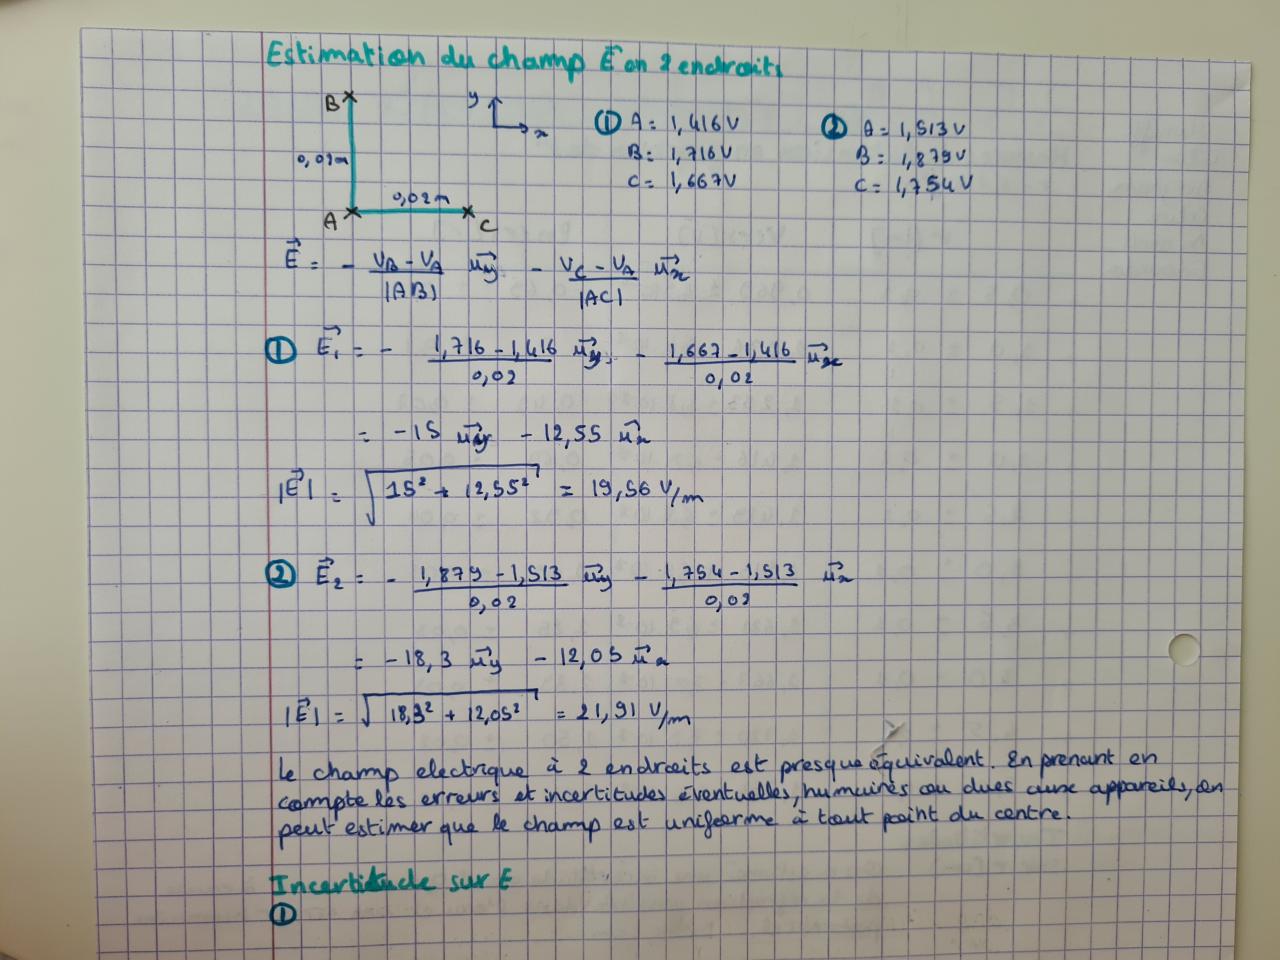 Estimation du champ E⃗ en 2 endroits
B
y
x
0,02m
0,02m
A
C
① A = 1,416V
B = 1,716V
C = 1,667V
② A = 1,513V
B = 1,879V
C = 1,754V
E⃗ = - (V_B - V_A)/|AB| u_y⃗ - (V_C - V_A)/|AC| u_x⃗
① E₁⃗ = - (1,716 - 1,416)/0,02 u_y⃗ - (1,667 - 1,416)/0,02 u_x⃗
= -15 u_y⃗ - 12,55 u_x⃗
|E⃗| = √(15² + 12,55²) = 19,56 V/m
② E₂⃗ = - (1,879 - 1,513)/0,02 u_y⃗ - (1,754 - 1,513)/0,02 u_x⃗
= -18,3 u_y⃗ - 12,05 u_x⃗
|E⃗| = √(18,3² + 12,05²) = 21,91 V/m
Le champ electrique à 2 endroits est presque équivalent. En prenant en
compte les erreurs et incertitudes éventuelles, humaines ou dues aux appareils, on
peut estimer que le champ est uniforme à tout point du centre.
Incertitude sur E
①